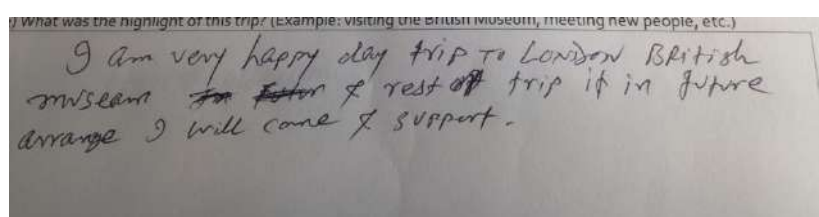 ) What was the highlight of this trip? (Example: visiting the British Museum, meeting new people, etc.)
I am very happy day trip To LONDON BRitish
museam & rest of trip if in future
arrange I will come & support.